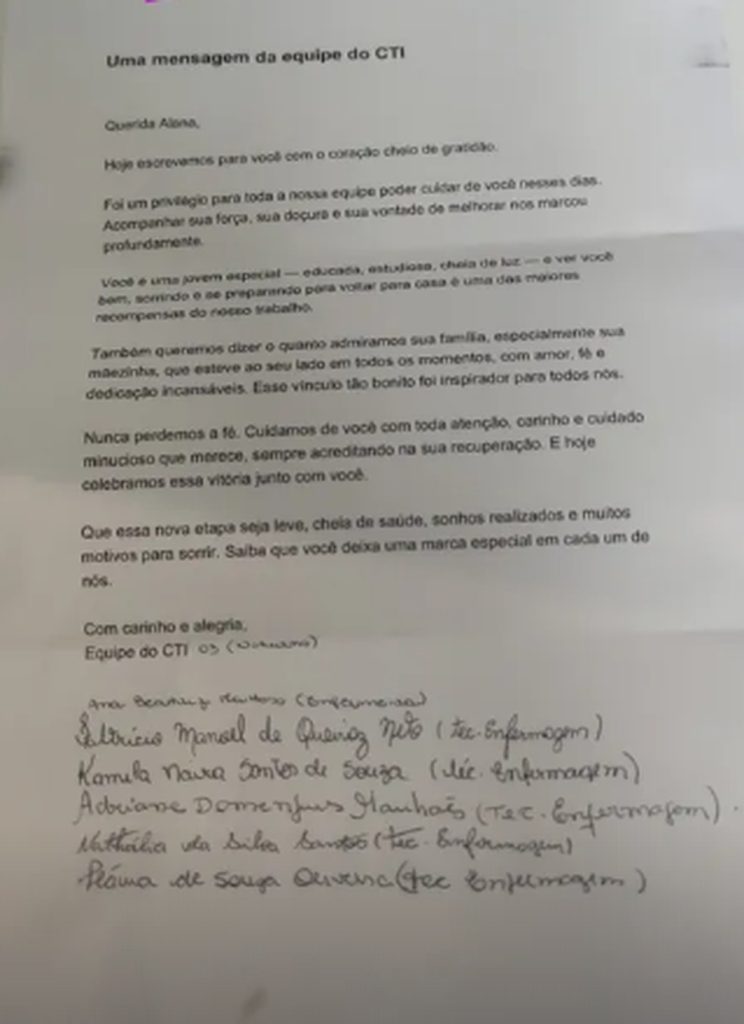 Uma mensagem da equipe do CTI
Querida Alana,
Hoje escrevemos para você com o coração cheio de gratidão.
Foi um privilégio para toda a nossa equipe poder cuidar de você nesses dias.
Acompanhar sua força, sua doçura e sua vontade de melhorar nos marcou
profundamente.
Você é uma jovem especial — educada, estudiosa, cheia de luz — e ver você
bem, sorrindo e se preparando para voltar para casa é uma das maiores
recompensas do nosso trabalho.
Também queremos dizer o quanto admiramos sua família, especialmente sua
mãezinha, que esteve ao seu lado em todos os momentos, com amor, fé e
dedicação incansáveis. Esse vínculo tão bonito foi inspirador para todos nós.
Nunca perdemos a fé. Cuidamos de você com toda atenção, carinho e cuidado
minucioso que merece, sempre acreditando na sua recuperação. E hoje
celebramos essa vitória junto com você.
Que essa nova etapa seja leve, cheia de saúde, sonhos realizados e muitos
motivos para sorrir. Saiba que você deixa uma marca especial em cada um de
nós.
Com carinho e alegria,
Equipe do CTI 03
Ana Beatriz (Enfermeira)
Manoel de Queiroz Neto (Tec. Enfermagem)
Kamila Naira Santos de Souza (Téc. Enfermagem)
Adriane Manhães (Tec. Enfermagem).
Nathália da Silva Santos (Tec. Enfermagem)
Flávia de Souza Oliveira (Tec Enfermagem)